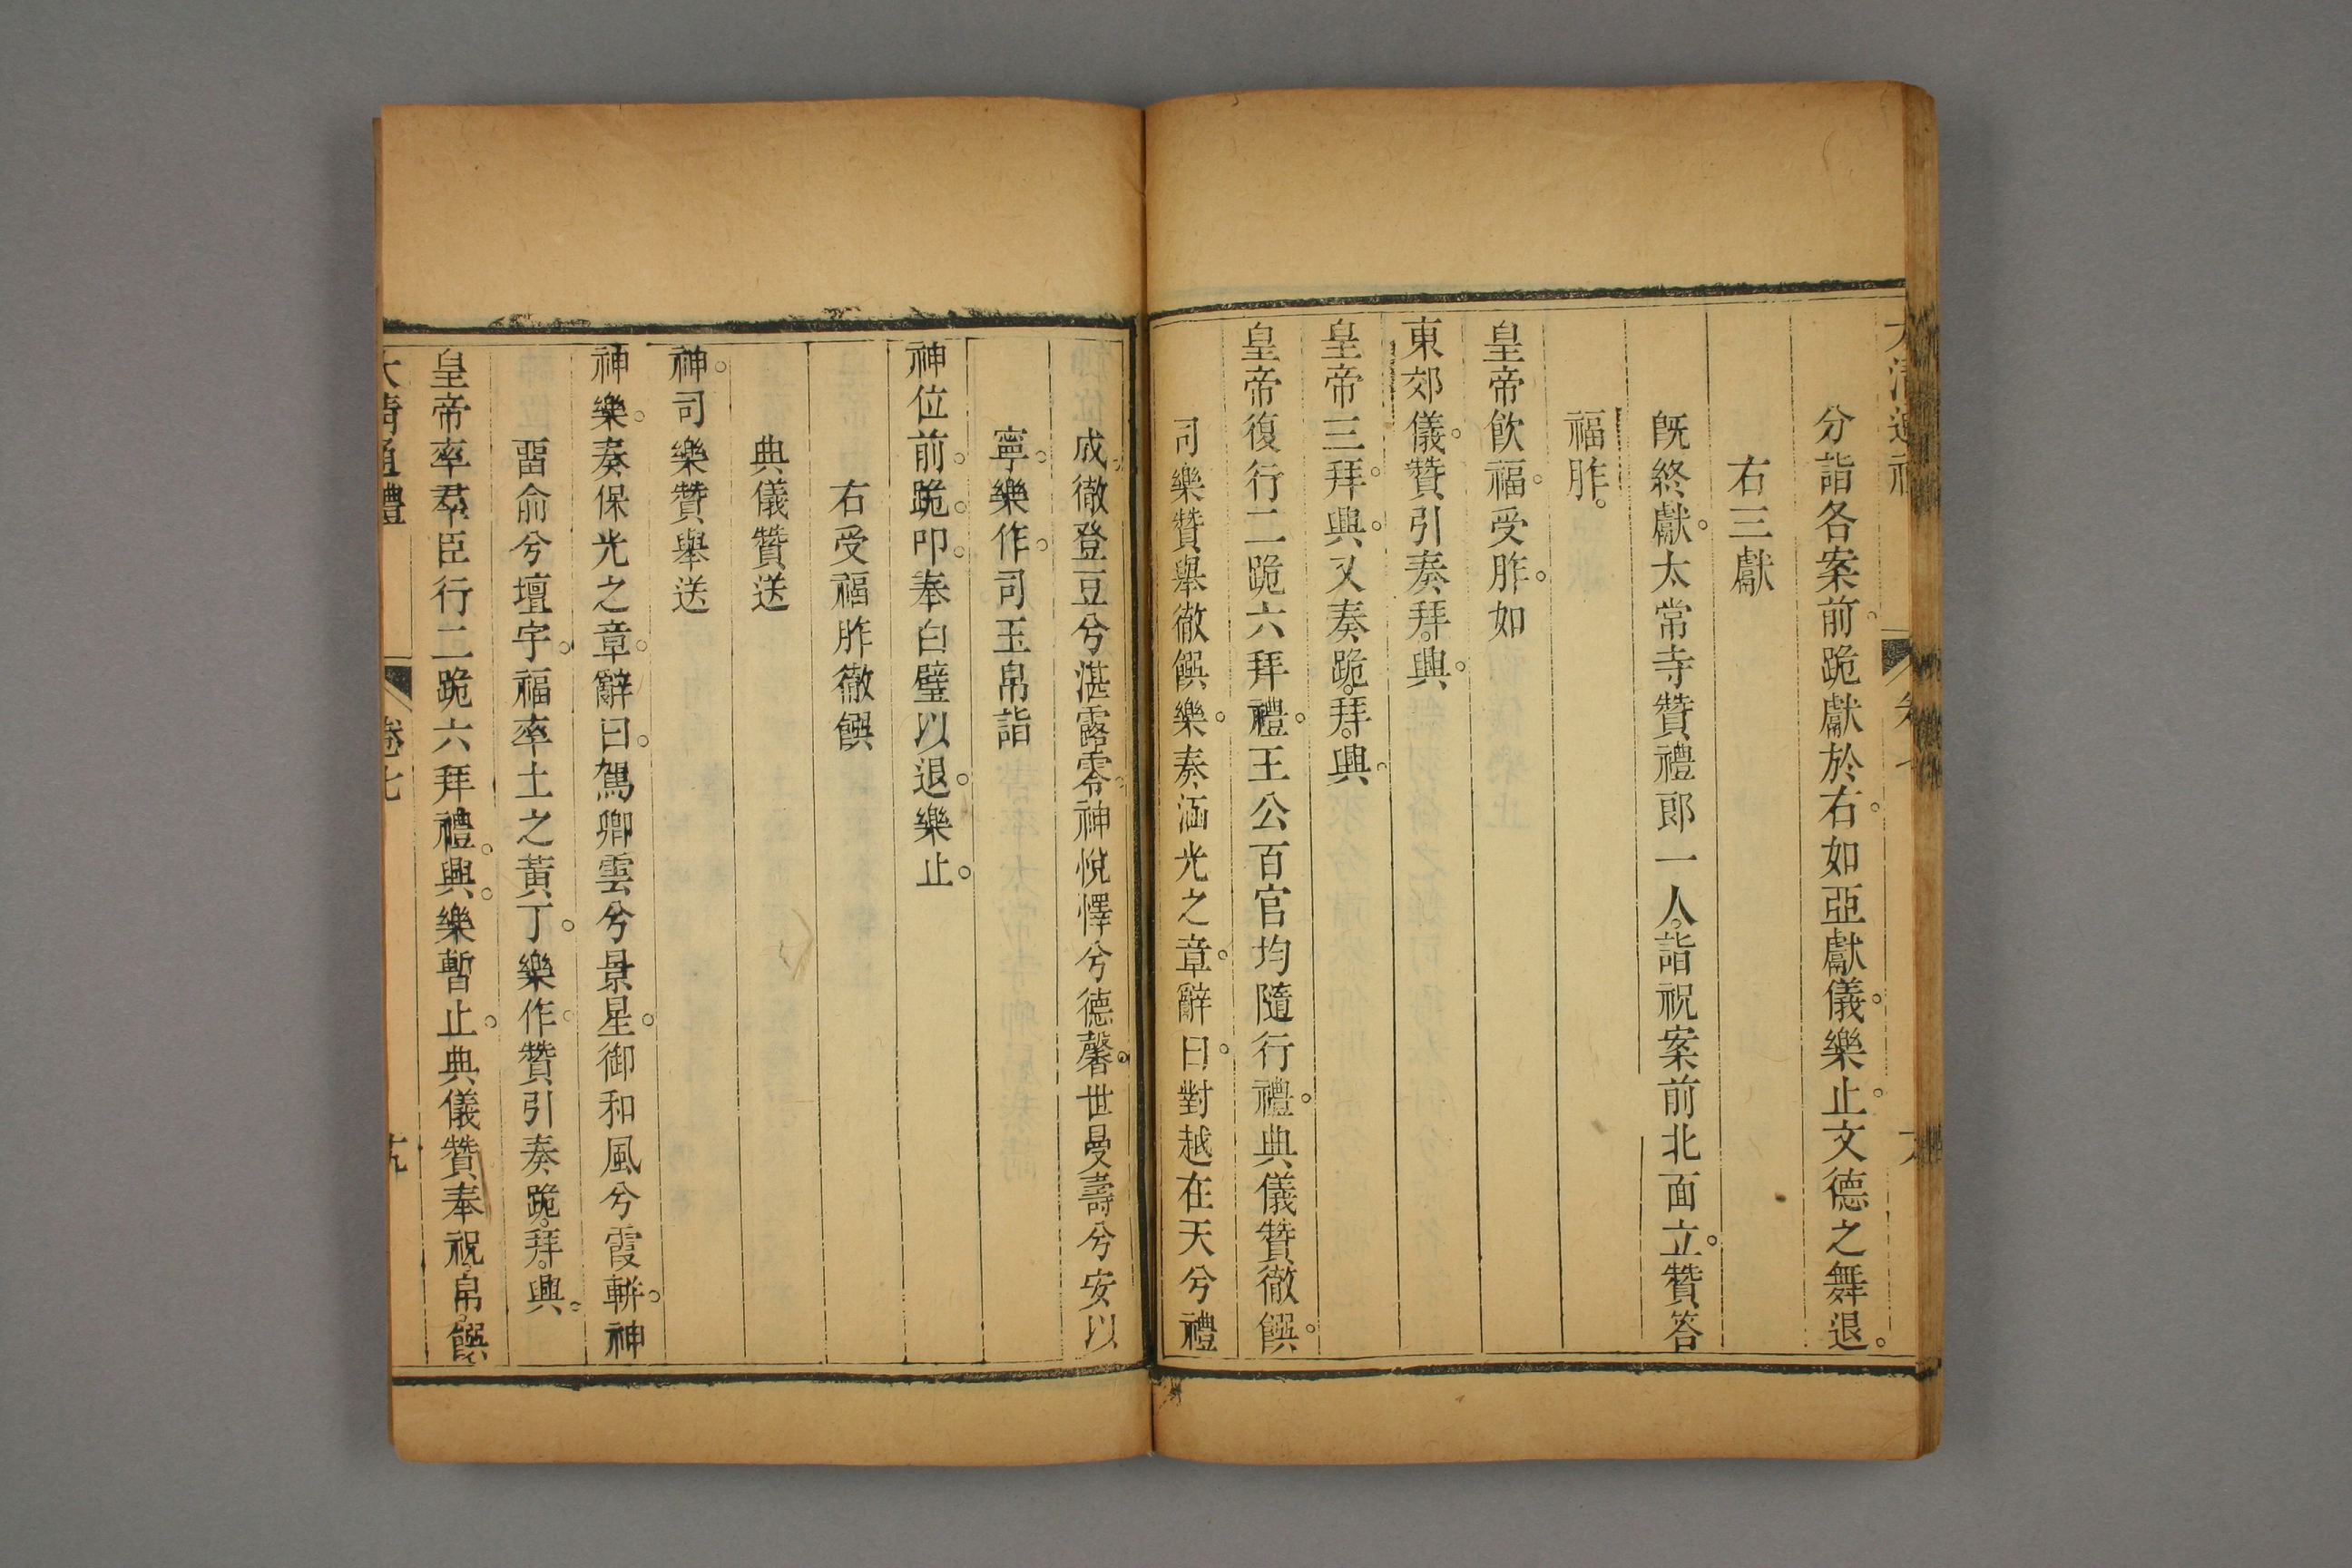 分詣各案前。跪獻於右。如亞獻儀。樂止。文德之舞退。
右三獻
既終獻。太常寺贊禮郎一人。詣祝案前北面立。贊答
福胙。
皇帝飲福。受胙。如
東郊儀。贊引奏拜。興。
皇帝三拜。興。又奏跪。拜。興。
皇帝復行二跪六拜禮。王公百官均隨行禮。典儀贊徹饌。
司樂贊舉徹饌樂。奏涵光之章。辭曰。對越在天兮禮
成。徹登豆兮湛露零。神悅懌兮德馨。世曼壽兮安以
寧。樂作。司玉帛詣
神位前。跪。叩。奉白璧以退。樂止。
右受福胙徹饌
典儀贊送
神。司樂贊舉送
神樂。奏保光之章。辭曰。駕卿雲兮景星。御和風兮霞軿。神
畱俞兮壇宇。福率土之黃丁。樂作。贊引奏跪。拜。興。
皇帝率羣臣行二跪六拜禮。興。樂暫止。典儀贊奉祝帛饌
大清通禮 卷七